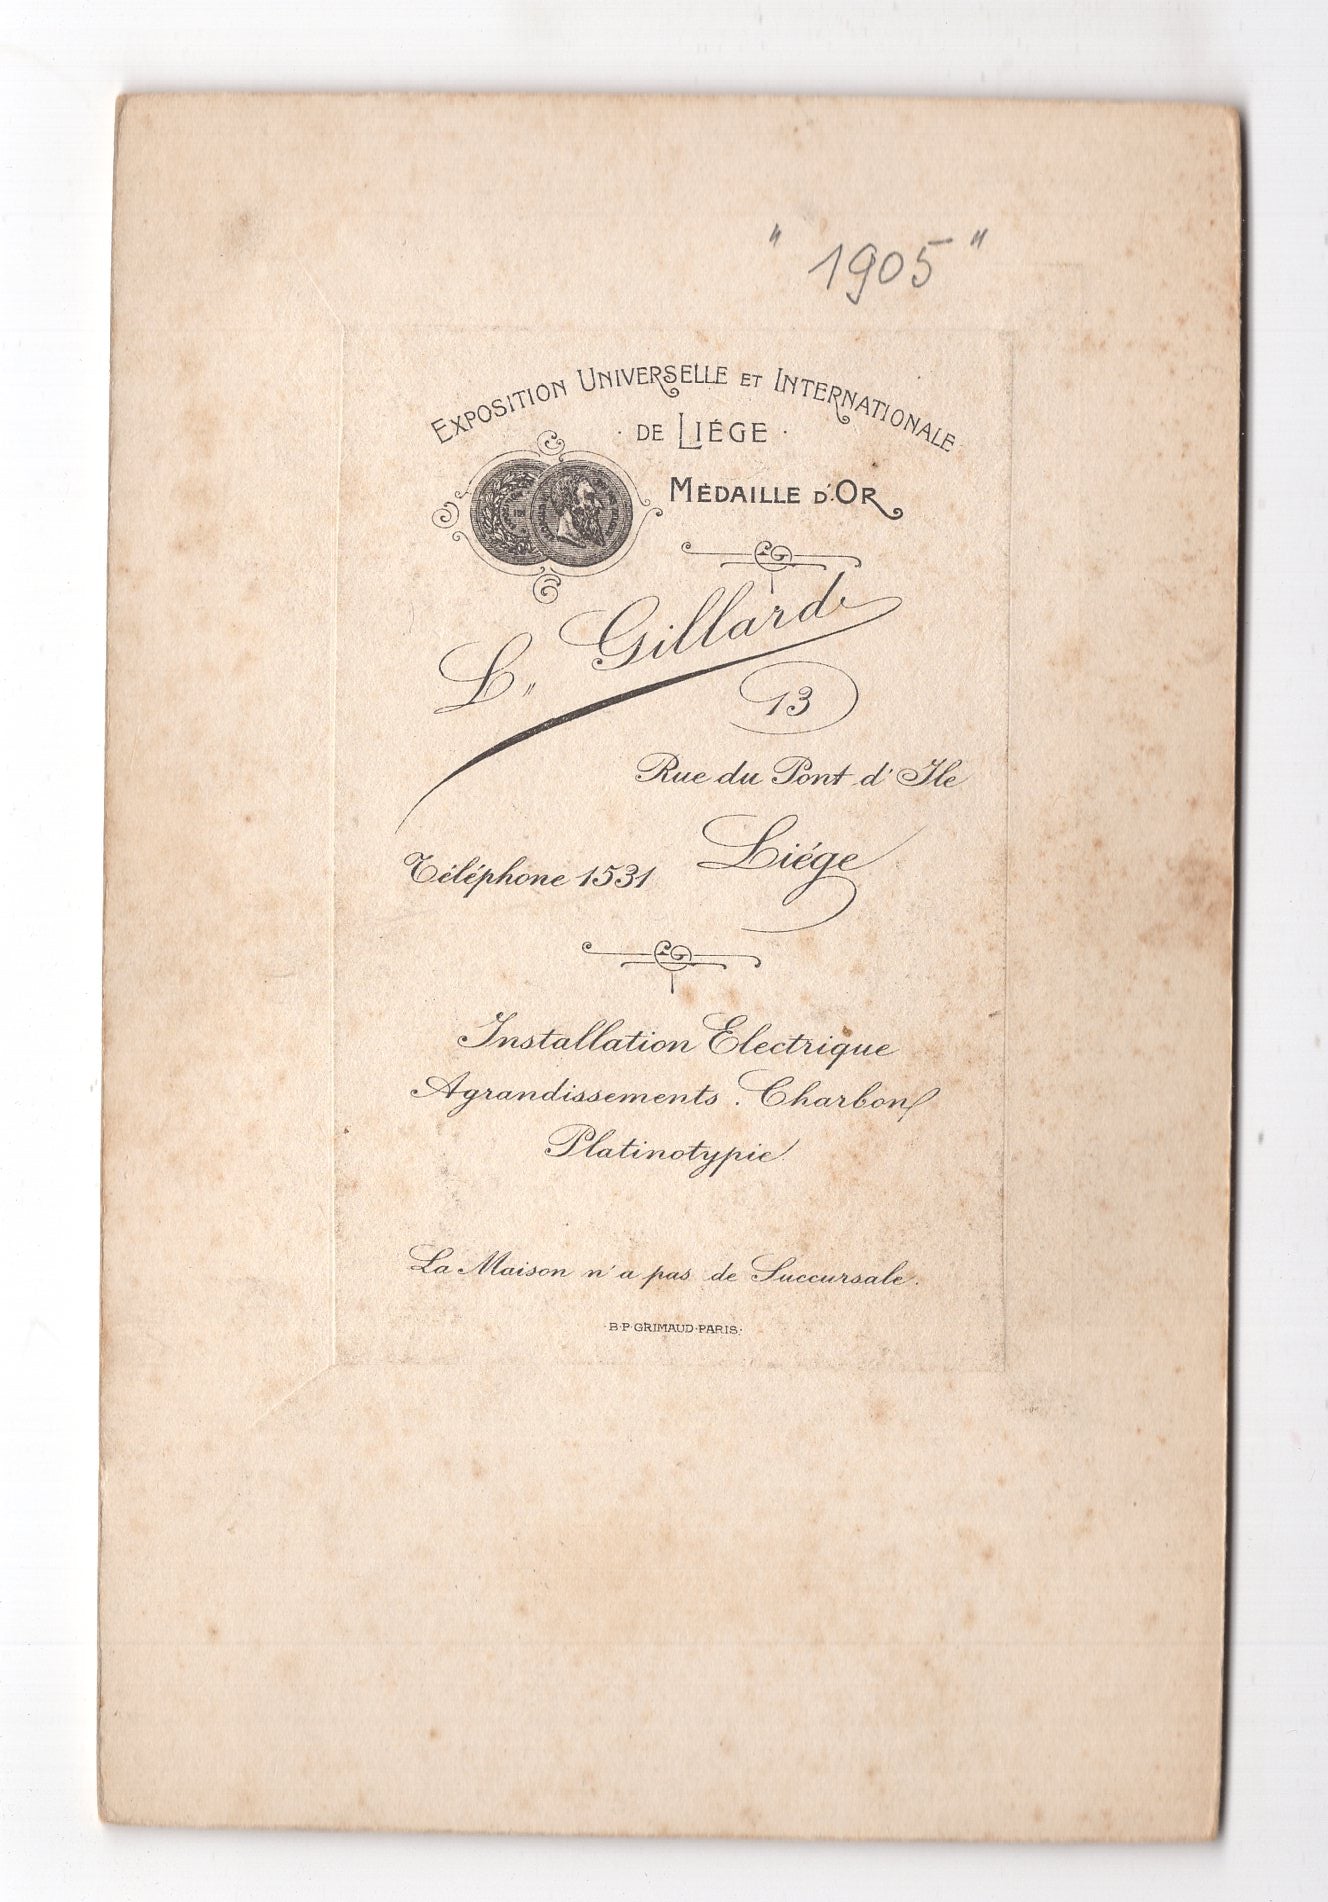 " 1905 "
EXPOSITION UNIVERSELLE ET INTERNATIONALE
· DE LIÉGE ·
MÉDAILLE D'OR
LG
L. Gillard
13
Rue du Pont d'Ile
Liége
Téléphone 1531
LG
Installation Electrique
Agrandissements . Charbon
Platinotypie
La Maison n'a pas de Succursale.
·B·P·GRIMAUD·PARIS·